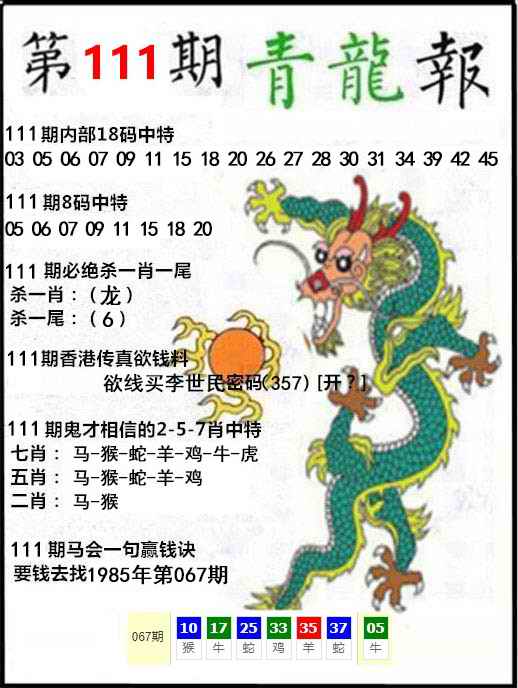 第111期青龍報
111期内部18码中特
03 05 06 07 09 11 15 18 20 26 27 28 30 31 34 39 42 45
111期8码中特
05 06 07 09 11 15 18 20
111期必绝杀一肖一尾
杀一肖：（龙）
杀一尾：（6）
111期香港传真欲钱料
欲线买李世民密码(357) [开？]
111期鬼才相信的2-5-7肖中特
七肖：马-猴-蛇-羊-鸡-牛-虎
五肖：马-猴-蛇-羊-鸡
二肖：马-猴
111期马会一句赢钱诀
要钱去找1985年第067期
067期 10 17 25 33 35 37 05
猴 牛 蛇 鸡 羊 蛇 牛